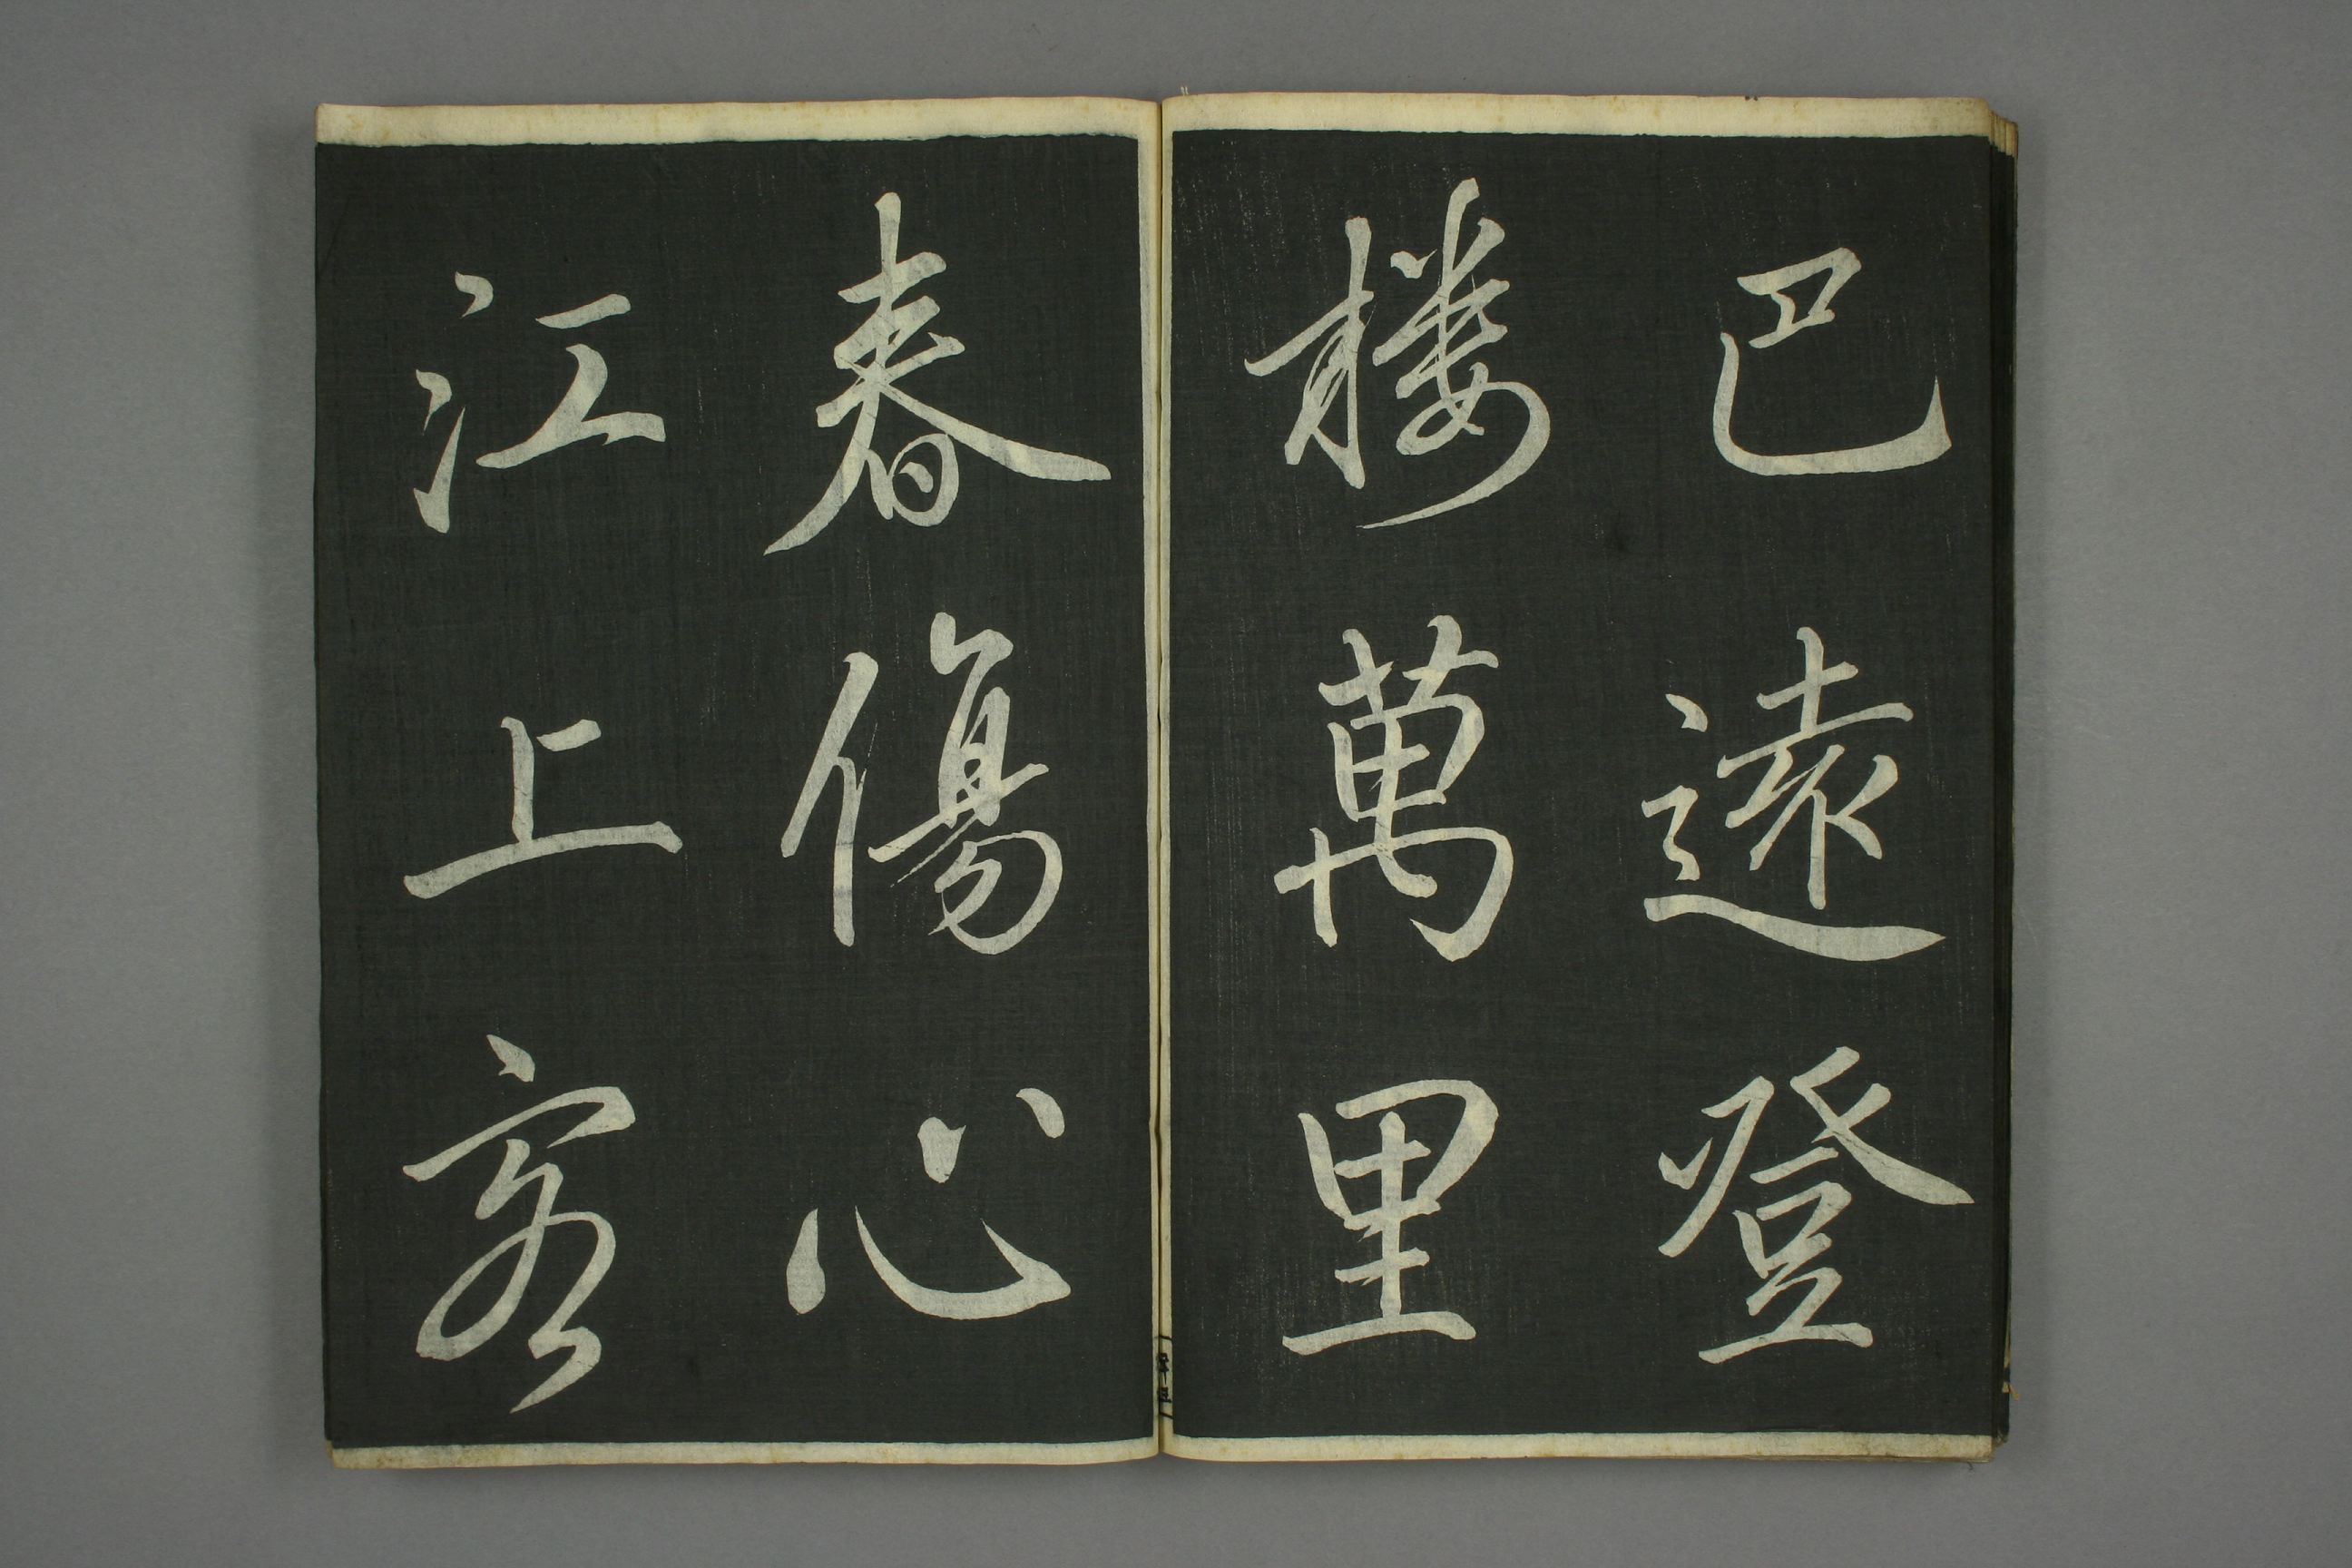 已遠登
楼萬里
春傷心
江上客